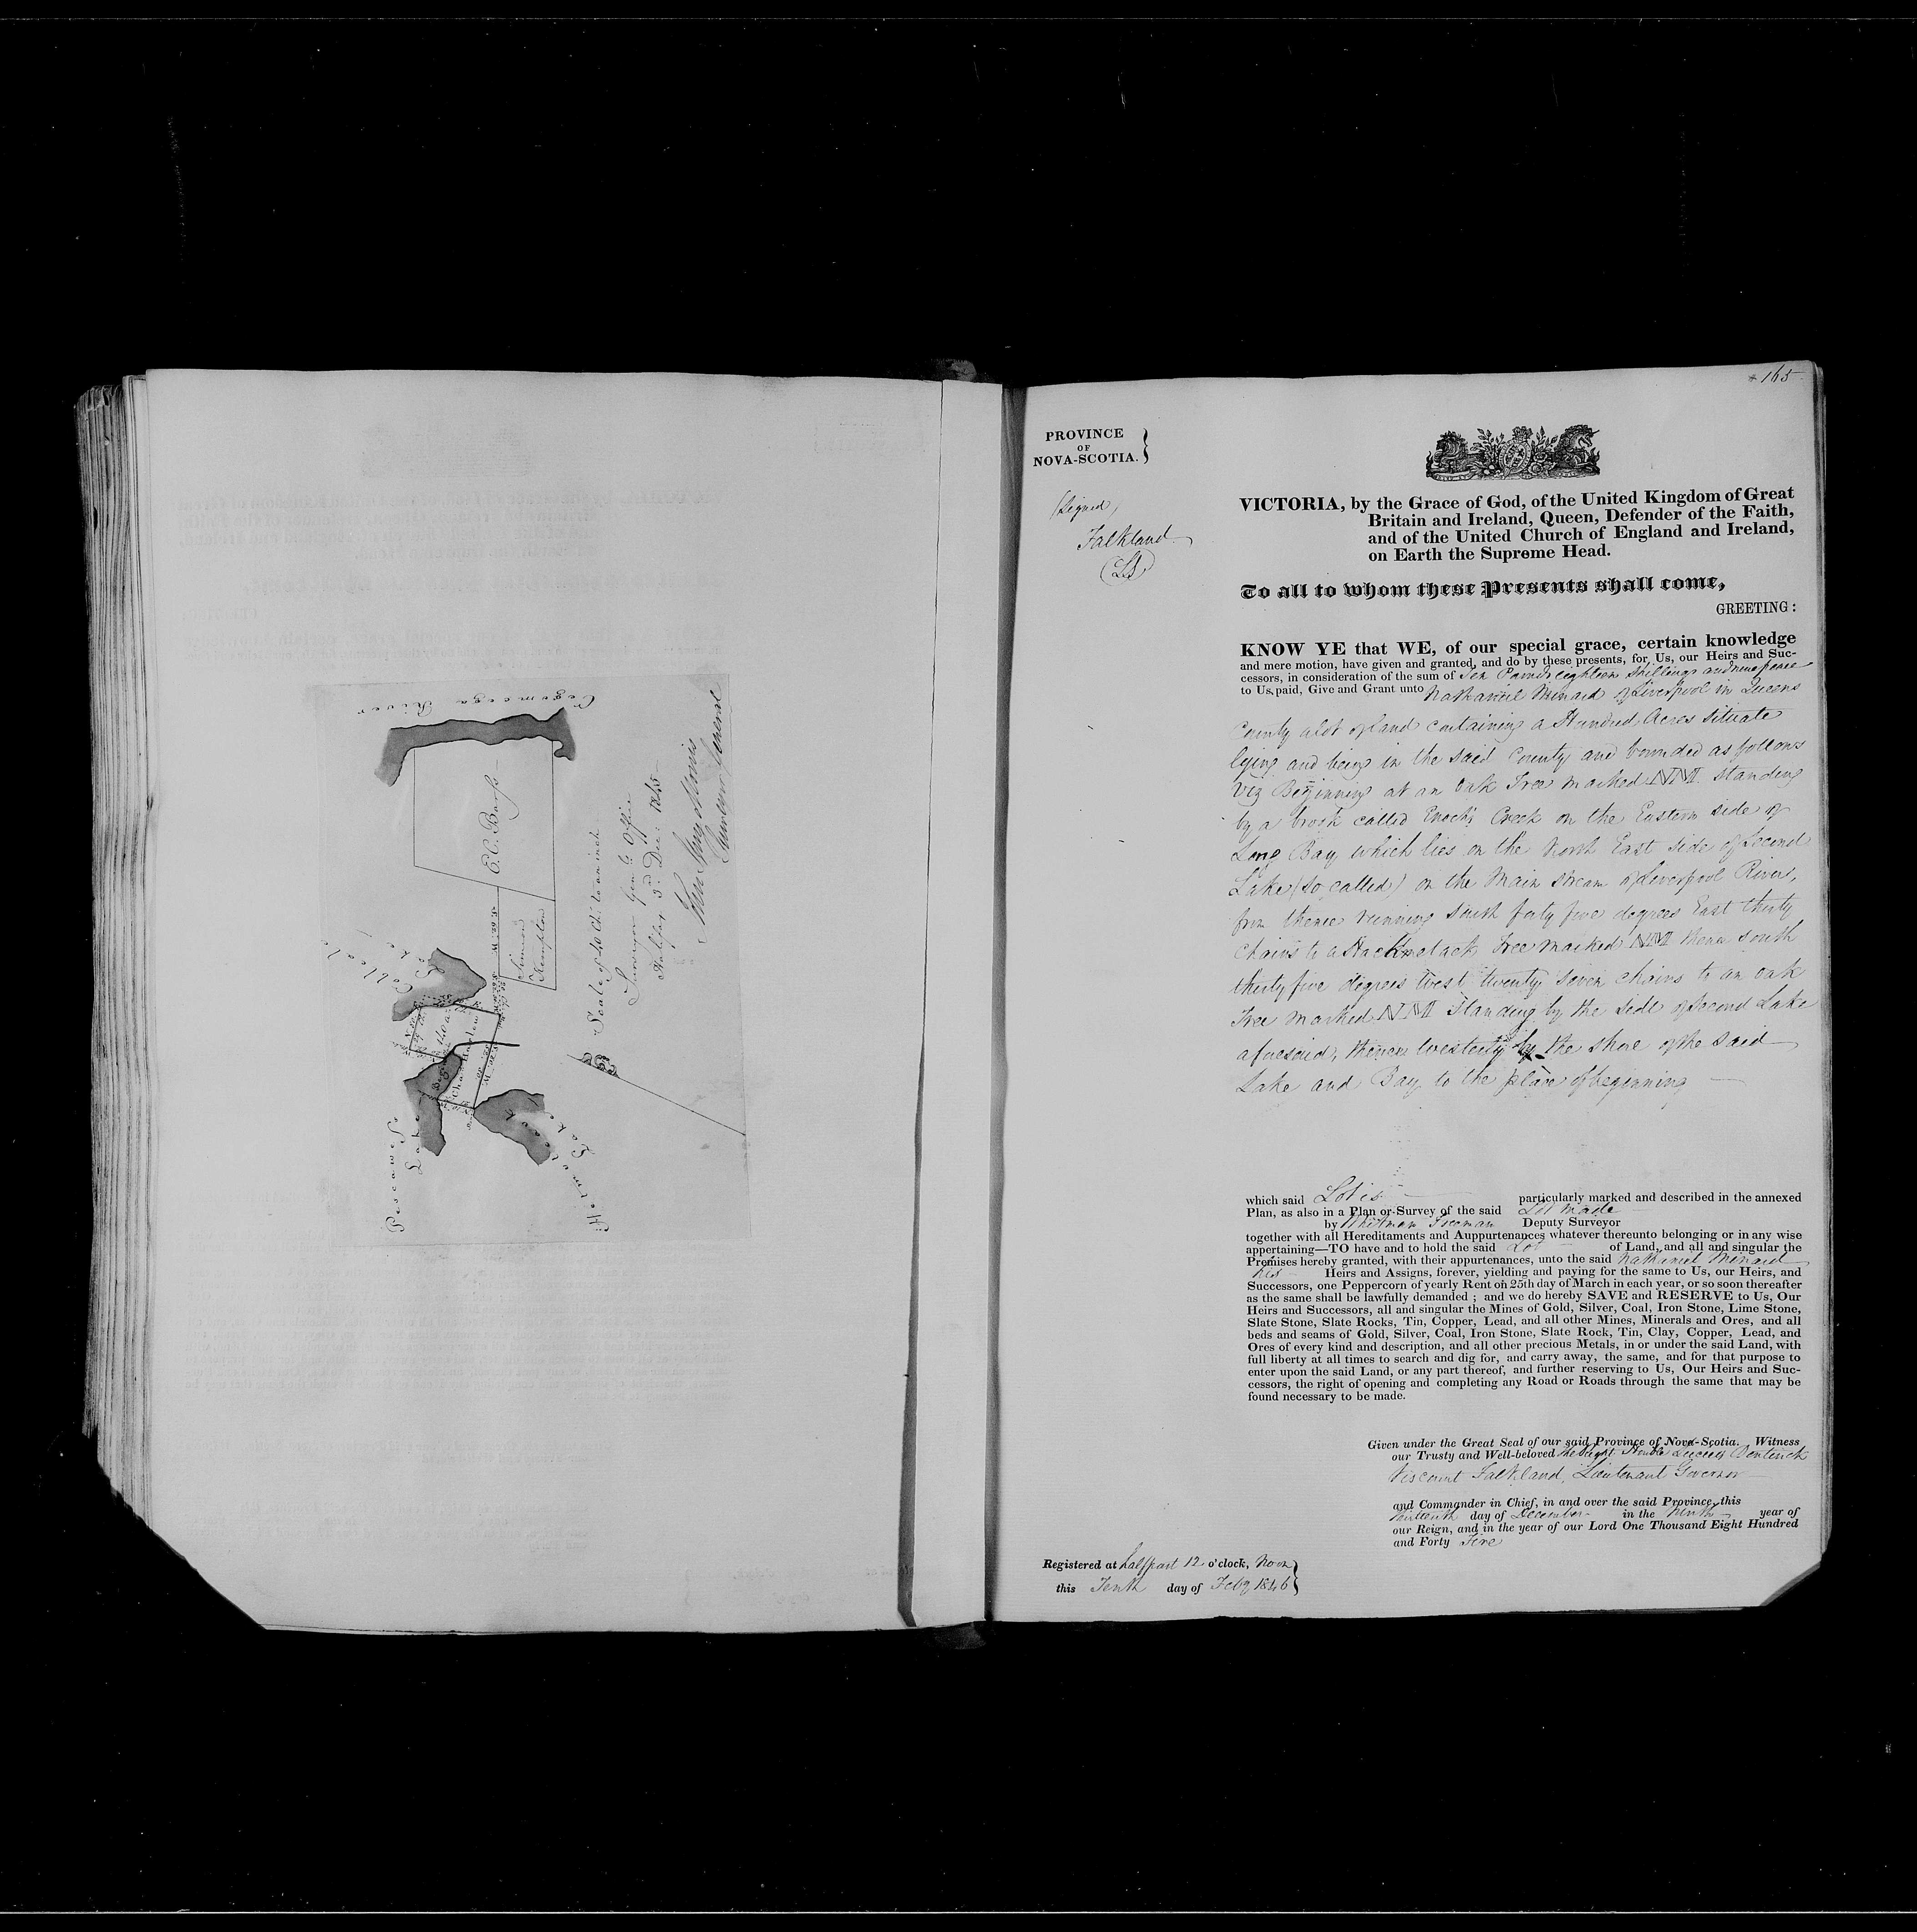 Cegomcega River
E. C. Barss
Simeon
Kempton
Lake
Chas Harlow
Lake
Lake
Scale of 40 Ch: to an inch
Surveyor Genls Office
Halifax 3d Decr 1845
John Spry Morris
Surveyor General
165
PROVINCE
OF
NOVA-SCOTIA.
(Signed)
Falkland
(LS)
VICTORIA, by the Grace of God, of the United Kingdom of Great
Britain and Ireland, Queen, Defender of the Faith,
and of the United Church of England and Ireland,
on Earth the Supreme Head.
To all to whom these Presents shall come,
GREETING:
KNOW YE that WE, of our special grace, certain knowledge
and mere motion, have given and granted, and do by these presents, for Us, our Heirs and Suc-
cessors, in consideration of the sum of Ten Pounds eighteen shillings and nine pence
to Us, paid, Give and Grant unto Nathaniel Minard of Liverpool in Queens
County a lot of land containing a Hundred Acres situate
lying and being in the said County and bounded as follows
Viz Beginning at an Oak Tree marked NM standing
by a brook called Enoch's Creek on the Eastern side of
Long Bay which lies on the North East side of Second
Lake (so called) on the Main stream of Liverpool River,
from thence running South forty five degrees East thirty
chains to a Hackmatack Tree marked NM thence South
thirty five degrees West twenty seven chains to an oak
Tree marked NM Standing by the side of Second Lake
aforesaid, thence Westerly by the shore of the said
Lake and Bay to the place of beginning
which said Lot is particularly marked and described in the annexed
Plan, as also in a Plan or Survey of the said Lot made
by Whitman Freeman Deputy Surveyor
together with all Hereditaments and Auppurtenances whatever thereunto belonging or in any wise
appertaining—TO have and to hold the said Lot of Land, and all and singular the
Premises hereby granted, with their appurtenances, unto the said Nathaniel Minard
his Heirs and Assigns, forever, yielding and paying for the same to Us, our Heirs, and
Successors, one Peppercorn of yearly Rent on 25th day of March in each year, or so soon thereafter
as the same shall be lawfully demanded; and we do hereby SAVE and RESERVE to Us, Our
Heirs and Successors, all and singular the Mines of Gold, Silver, Coal, Iron Stone, Lime Stone,
Slate Stone, Slate Rocks, Tin, Copper, Lead, and all other Mines, Minerals and Ores, and all
beds and seams of Gold, Silver, Coal, Iron Stone, Slate Rock, Tin, Clay, Copper, Lead, and
Ores of every kind and description, and all other precious Metals, in or under the said Land, with
full liberty at all times to search and dig for, and carry away, the same, and for that purpose to
enter upon the said Land, or any part thereof, and further reserving to Us, Our Heirs and Suc-
cessors, the right of opening and completing any Road or Roads through the same that may be
found necessary to be made.
Given under the Great Seal of our said Province of Nova-Scotia. Witness
our Trusty and Well-beloved the Right Honble Lucius Bentinck
Viscount Falkland, Lieutenant Governor
and Commander in Chief, in and over the said Province, this
day of December in the Ninth year of
our Reign, and in the year of our Lord One Thousand Eight Hundred
and Forty Five
Registered at half past 12 o'clock, Noon
this Tenth day of Feby 1846